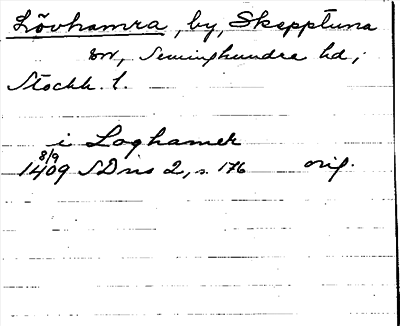 Lövhamra, by, Skepptuna
sn, Seminghundra hd,
Stockh. l.
i Loghamer
8/9
1409 SD ns 2, s. 176 orig.